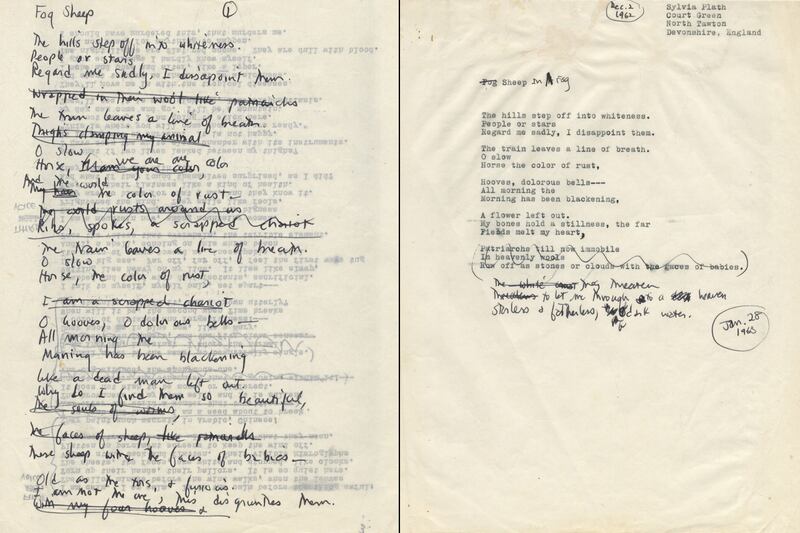 Fog Sheep
1
The hills step off into whiteness.
People or stars
Regard me sadly, I disappoint them.
Wrapped in their wool like patriarchs
The train leaves a line of breath.
Thighs clamping my animal
O slow
Horse, we are one color
I am your color,
And the world
the color of rust —
The world rusts around us
Ribs, spokes, a scrapped chariot
The train leaves a line of breath.
O slow
Horse, the color of rust,
I am a scrapped chariot
O hooves, O dolorous bells —
All morning the
Morning has been blackening
Like a dead man left out.
Why do I find them so beautiful,
The souls of worms,
The faces of sheep, like patriarchs
These sheep with the faces of babies —
Old as the & furious.
I am not the one, this disgruntles them.
With my four hooves &
3
Dec. 2
1962
Sylvia Plath
Court Green
North Tawton
Devonshire, England
Fog Sheep In A Fog
The hills step off into whiteness.
People or stars
Regard me sadly, I disappoint them.
The train leaves a line of breath.
O slow
Horse the color of rust,
Hooves, dolorous bells---
All morning the
Morning has been blackening,
A flower left out.
My bones hold a stillness, the far
Fields melt my heart,
Patriarchs till now immobile
In heavenly wools
Row off as stones or clouds with the faces of babies.)
The white They threaten
to let me through to a heaven
Starless & fatherless, a dark water.
Jan. 28
1963